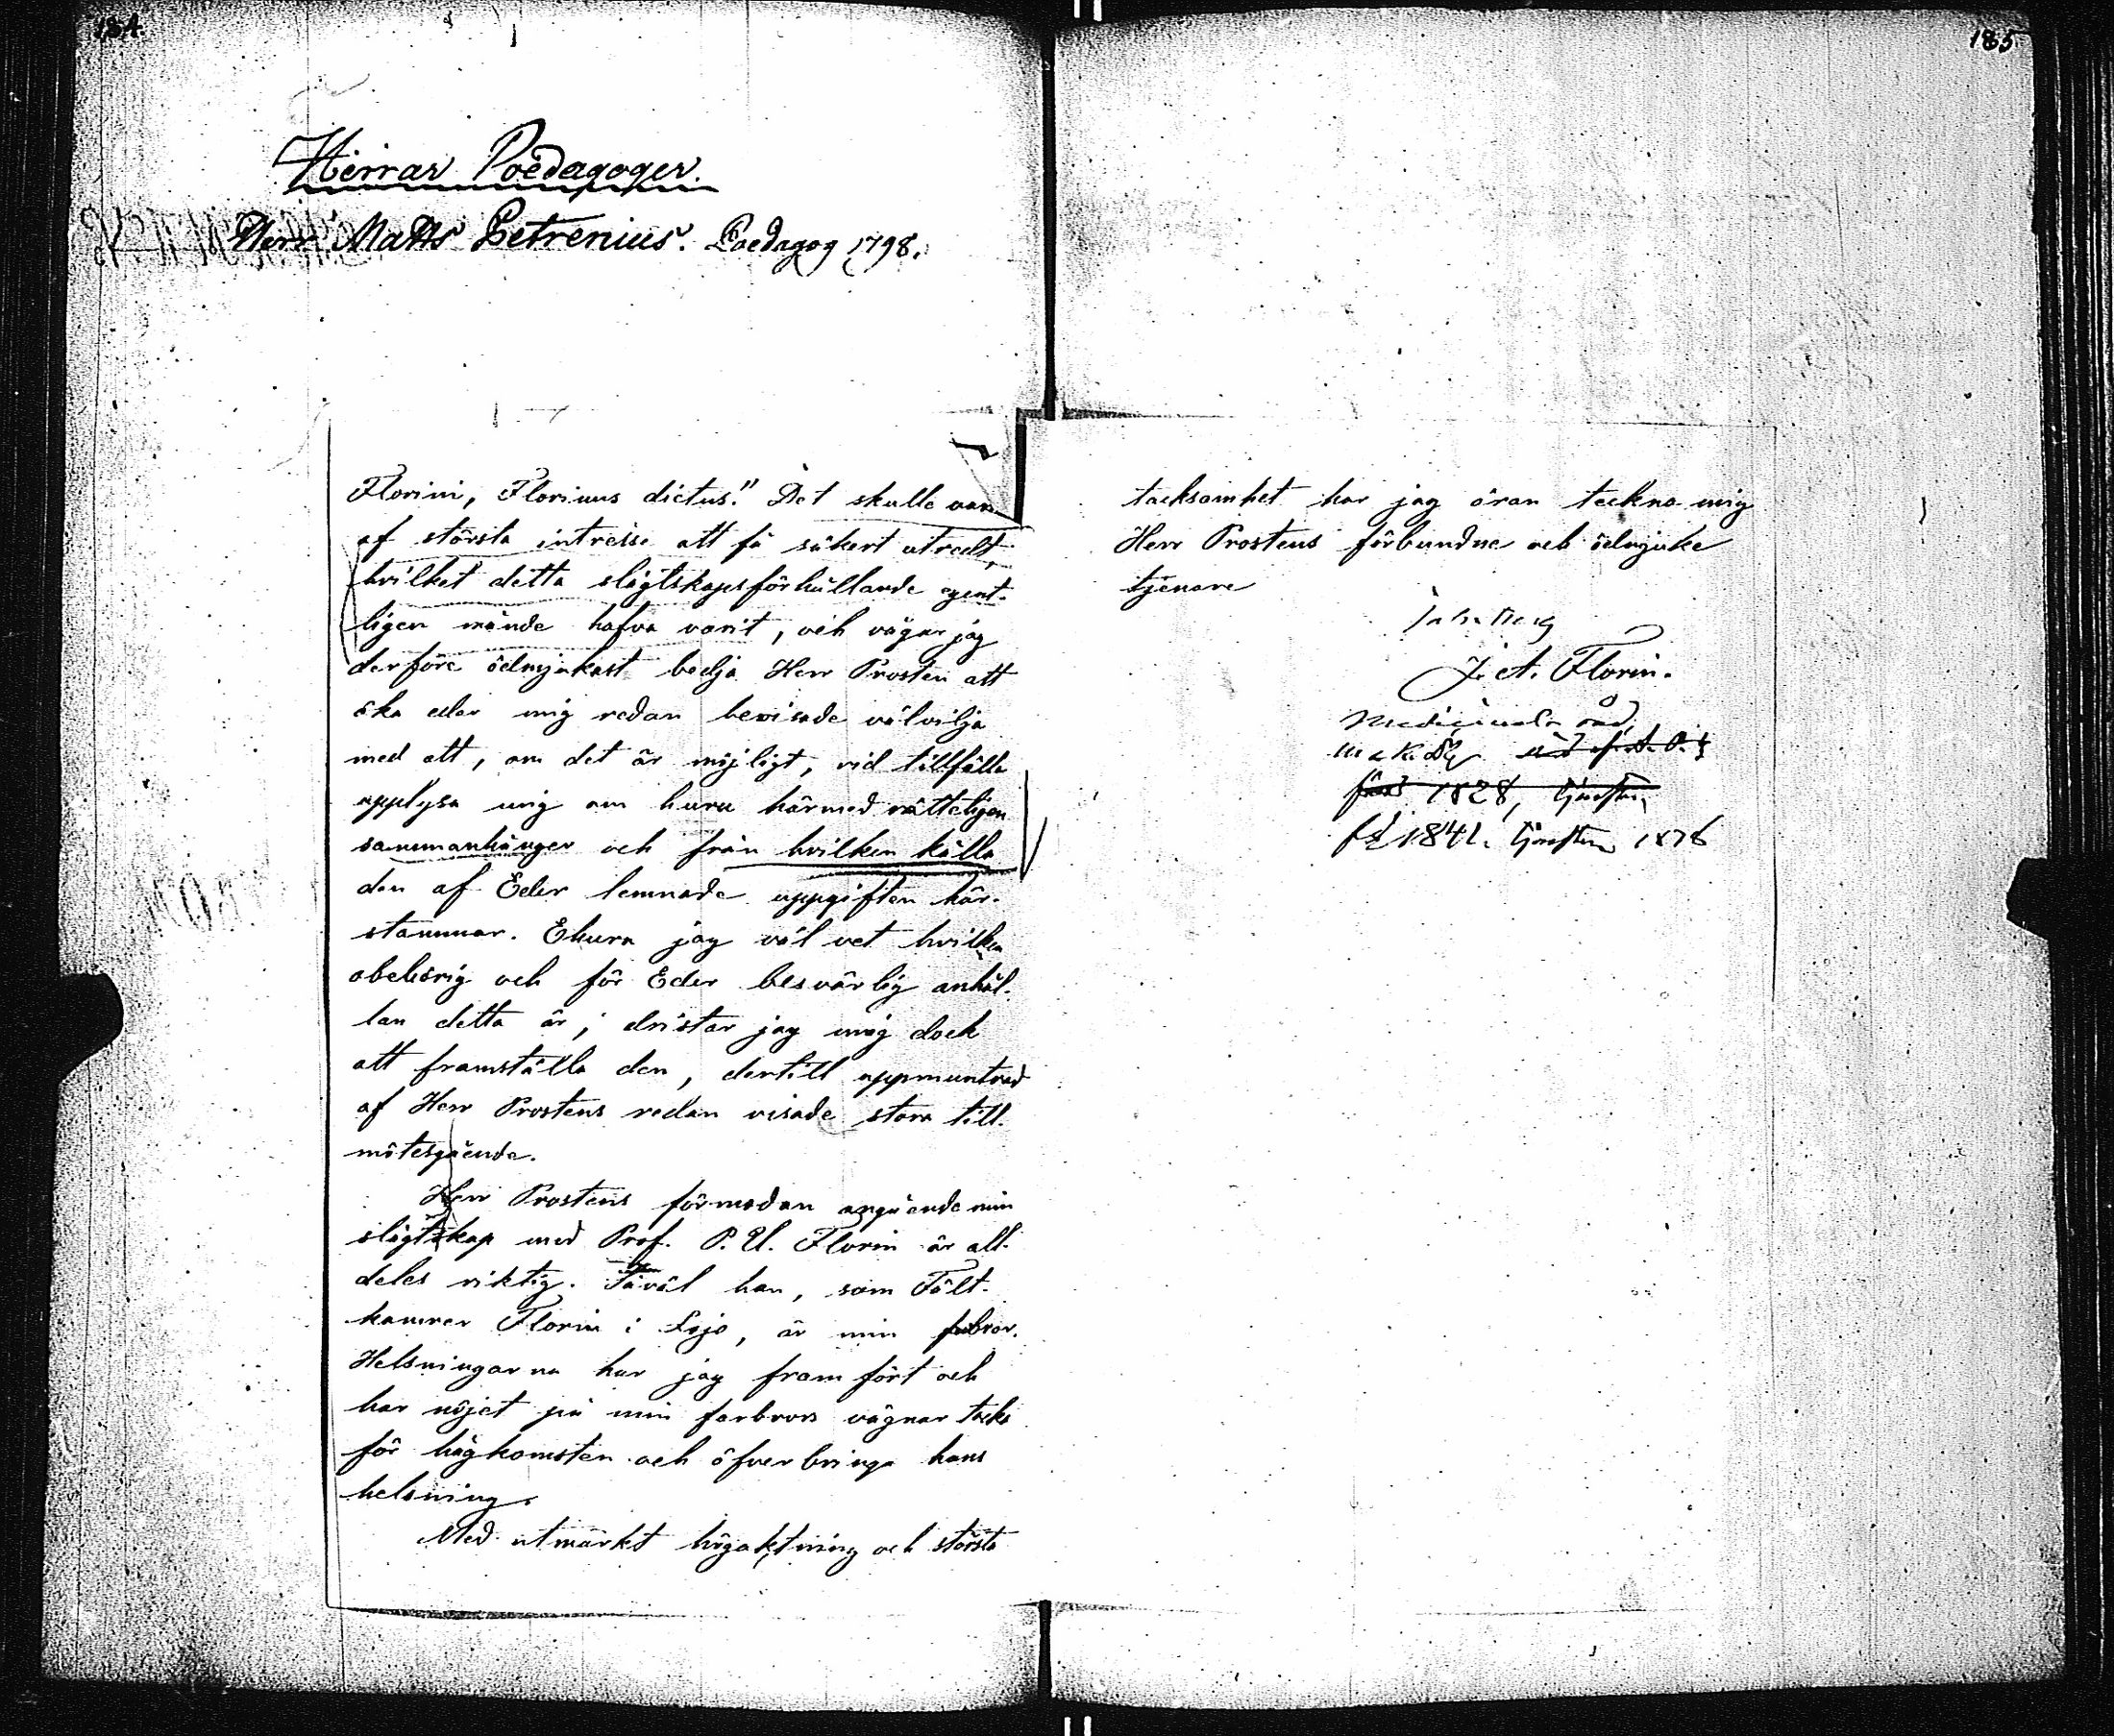 184.
Herrar Poedagoger.
Herr Matts Petrenius. Poedagog 1798.
Florini, Florinus dictus." Det skulle vara
af största intresse att få säkert utredt,
hvilket detta slägtskapsförhållande egent-
ligen månde hafva varit, och vågar jag
derföre ödmjukast bedja Herr Prosten att
öka eder mig redan bevisade välvilja
med att, om det är möjligt, vid tillfälle
upplysa mig om huru härmed rätteligen
sammanhänger och från hvilken källa
den af Eder lemnade uppgiften här-
stammar. Ehuru jag väl vet hvilken
obehörig och för Eder besvärlig anhål-
lan detta är, dristar jag mig dock
att framställa den, dertill uppmuntrad
af Herr Prostens redan visade stora till-
mötesgående.
Herr Prostens förmodan angående min
slägtskap med Prof. P. U. Florin är all-
deles riktig. Såväl han, som Fält-
kamrer Florin i Lojo, är min farbror.
Helsningarna har jag framfört och
har nöjet på min farbrors vägnar tacka
för hågkomsten och öfverbringa hans
helsning.
Med utmärkt högaktning och största
185
tacksamhet har jag äran teckna mig
Herr Prostens förbundne och ödmjuke
tjenare
J. A. Florin.
Medicinalråd,
1828,
fd 1841. 1876